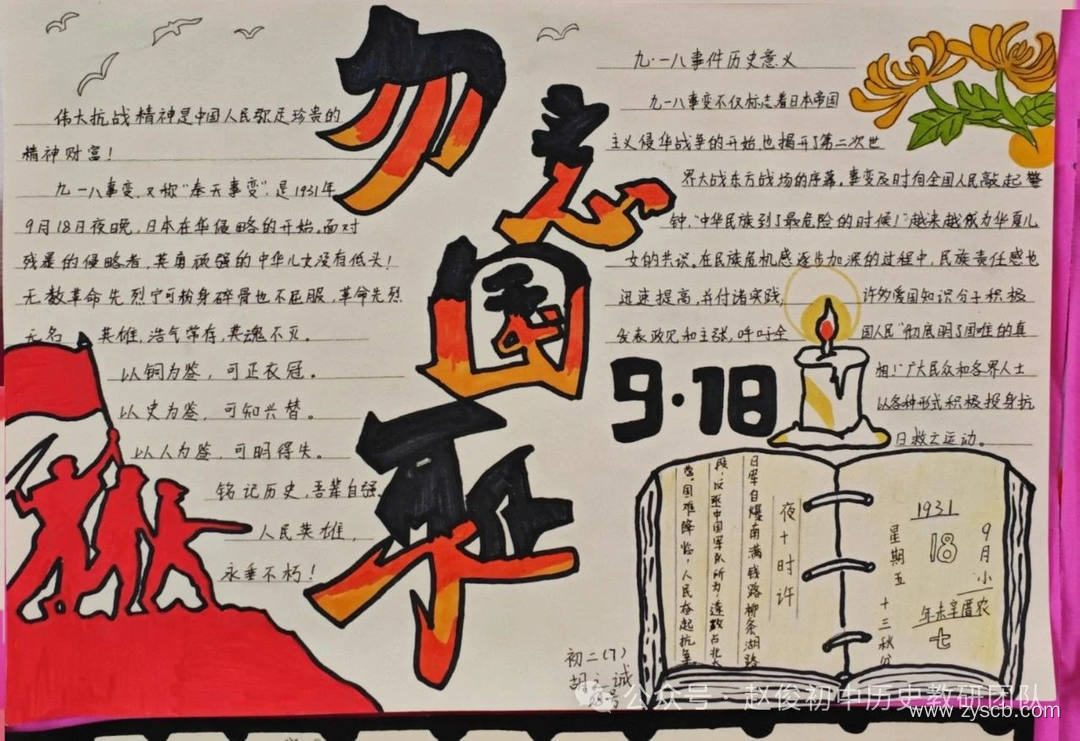 勿忘国耻
伟大抗战精神是中国人民弥足珍贵的
精神财富!
九一八事变,又称"奉天事变",是1931年
9月18日夜晚,日本在华侵略的开始。面对
残暴的侵略者,英勇顽强的中华儿女没有低头!
无数革命先烈宁可粉身碎骨也不屈服,革命先烈
无名 英雄,浩气常存,英魂不灭。
以铜为鉴,可正衣冠。
以史为鉴,可知兴替。
以人为鉴,可明得失。
铭记历史,吾辈自强,
人民英雄,
永垂不朽!
九·一八事件历史意义
九一八事变不仅标志着日本帝国
主义侵华战争的开始,也揭开了第二次世
界大战东方战场的序幕,事变及时向全国人民敲起警
钟,"中华民族到了最危险的时候!"越来越成为华夏儿
女的共识。在民族危机感逐步加深的过程中,民族责任感也
迅速提高,并付诸实践, 许多爱国知识分子积极
发表政见和主张,呼吁全 国人民"彻底明了国难的真
相!"广大民众和各界人士
以各种形式积极投身抗
日救亡运动。
9·18
1931
9月小
18
星期五
年未辛曆农
七
十三秋分
夜十时许
日军自爆南满铁路柳条湖路
段,反诬中国军队所为,遂
国难降临,人民奋起抗争
初二(7)
胡 诚
公众号·赵俊初中历史教研团队
www.zyscb.com